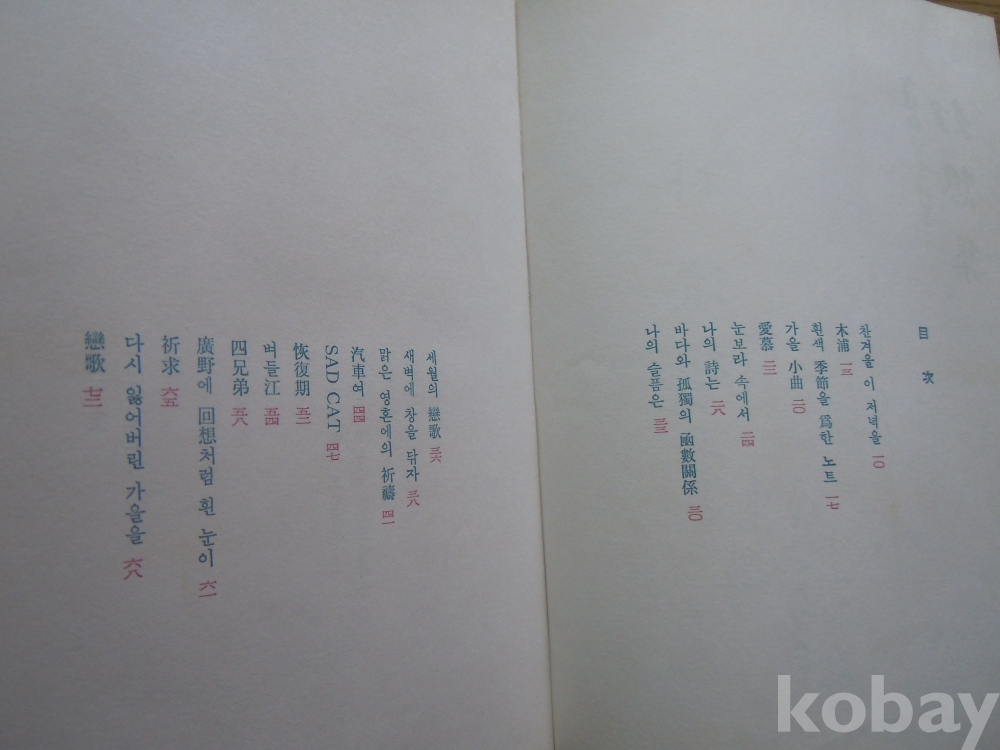 目次
찬겨울 이 저녁을 一〇
木浦 一三
흰색 季節을 爲한 노트 一七
가을 小曲 二〇
愛慕 二二
눈보라 속에서 二四
나의 詩는 二八
바다와 孤獨의 函數關係 三〇
나의 슬픔은 三三
세월의 戀歌 三六
새벽에 창을 닦자 三八
맑은 영혼에의 祈禱 四一
汽車여 四四
SAD CAT 四七
恢復期 五二
버들江 五四
四兄弟 五八
廣野에 回想처럼 흰 눈이 六一
祈求 六五
다시 잃어버린 가을을 六八
戀歌 七二
kobay